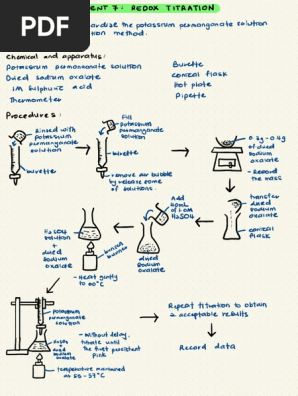 PDF
ENT 7: REDOX TITRATION
ardise the potassium permanganate solution
tion method.
Chemical and apparatus:
Potassium permanganate solution
Burette
Dried sodium oxalate
Conical flask
1M Sulphuric acid
Hot plate
Thermometer
Pipette
Procedures:
Rinsed with
potassium
permanganate
solution
burette
Fill
potassium
permanganate
solution
burette
remove air bubble
by release some
of solutions.
0.3g - 0.4g
of dried
sodium
oxalate
- Record
the mass
transfer
dried
sodium
oxalate
conical
flask
Add
of 1.0M
H2SO4
dried
sodium
oxalate
H2SO4
solution
+
dried
sodium
oxalate
bunsen
burner
- Heat gently
to 60°C
potassium
permanganate
solution
H2SO4
+
dried
sodium
oxalate
- Without delay,
titrate until
the first persistent
pink
temperature maintained
at 55-57°C
Repeat titration to obtain
2 acceptable results
Record data